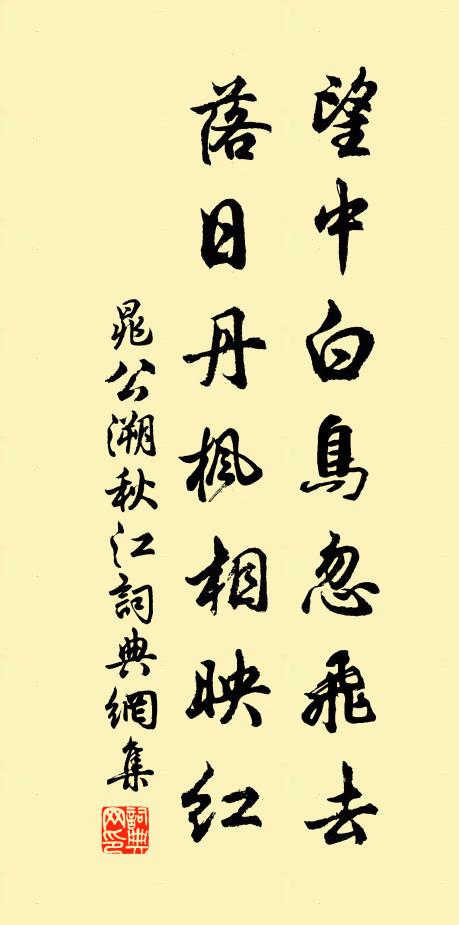 望中白鳥忽飛去
落日丹楓相映紅
晁公溯秋江詞典網集
詞典网印